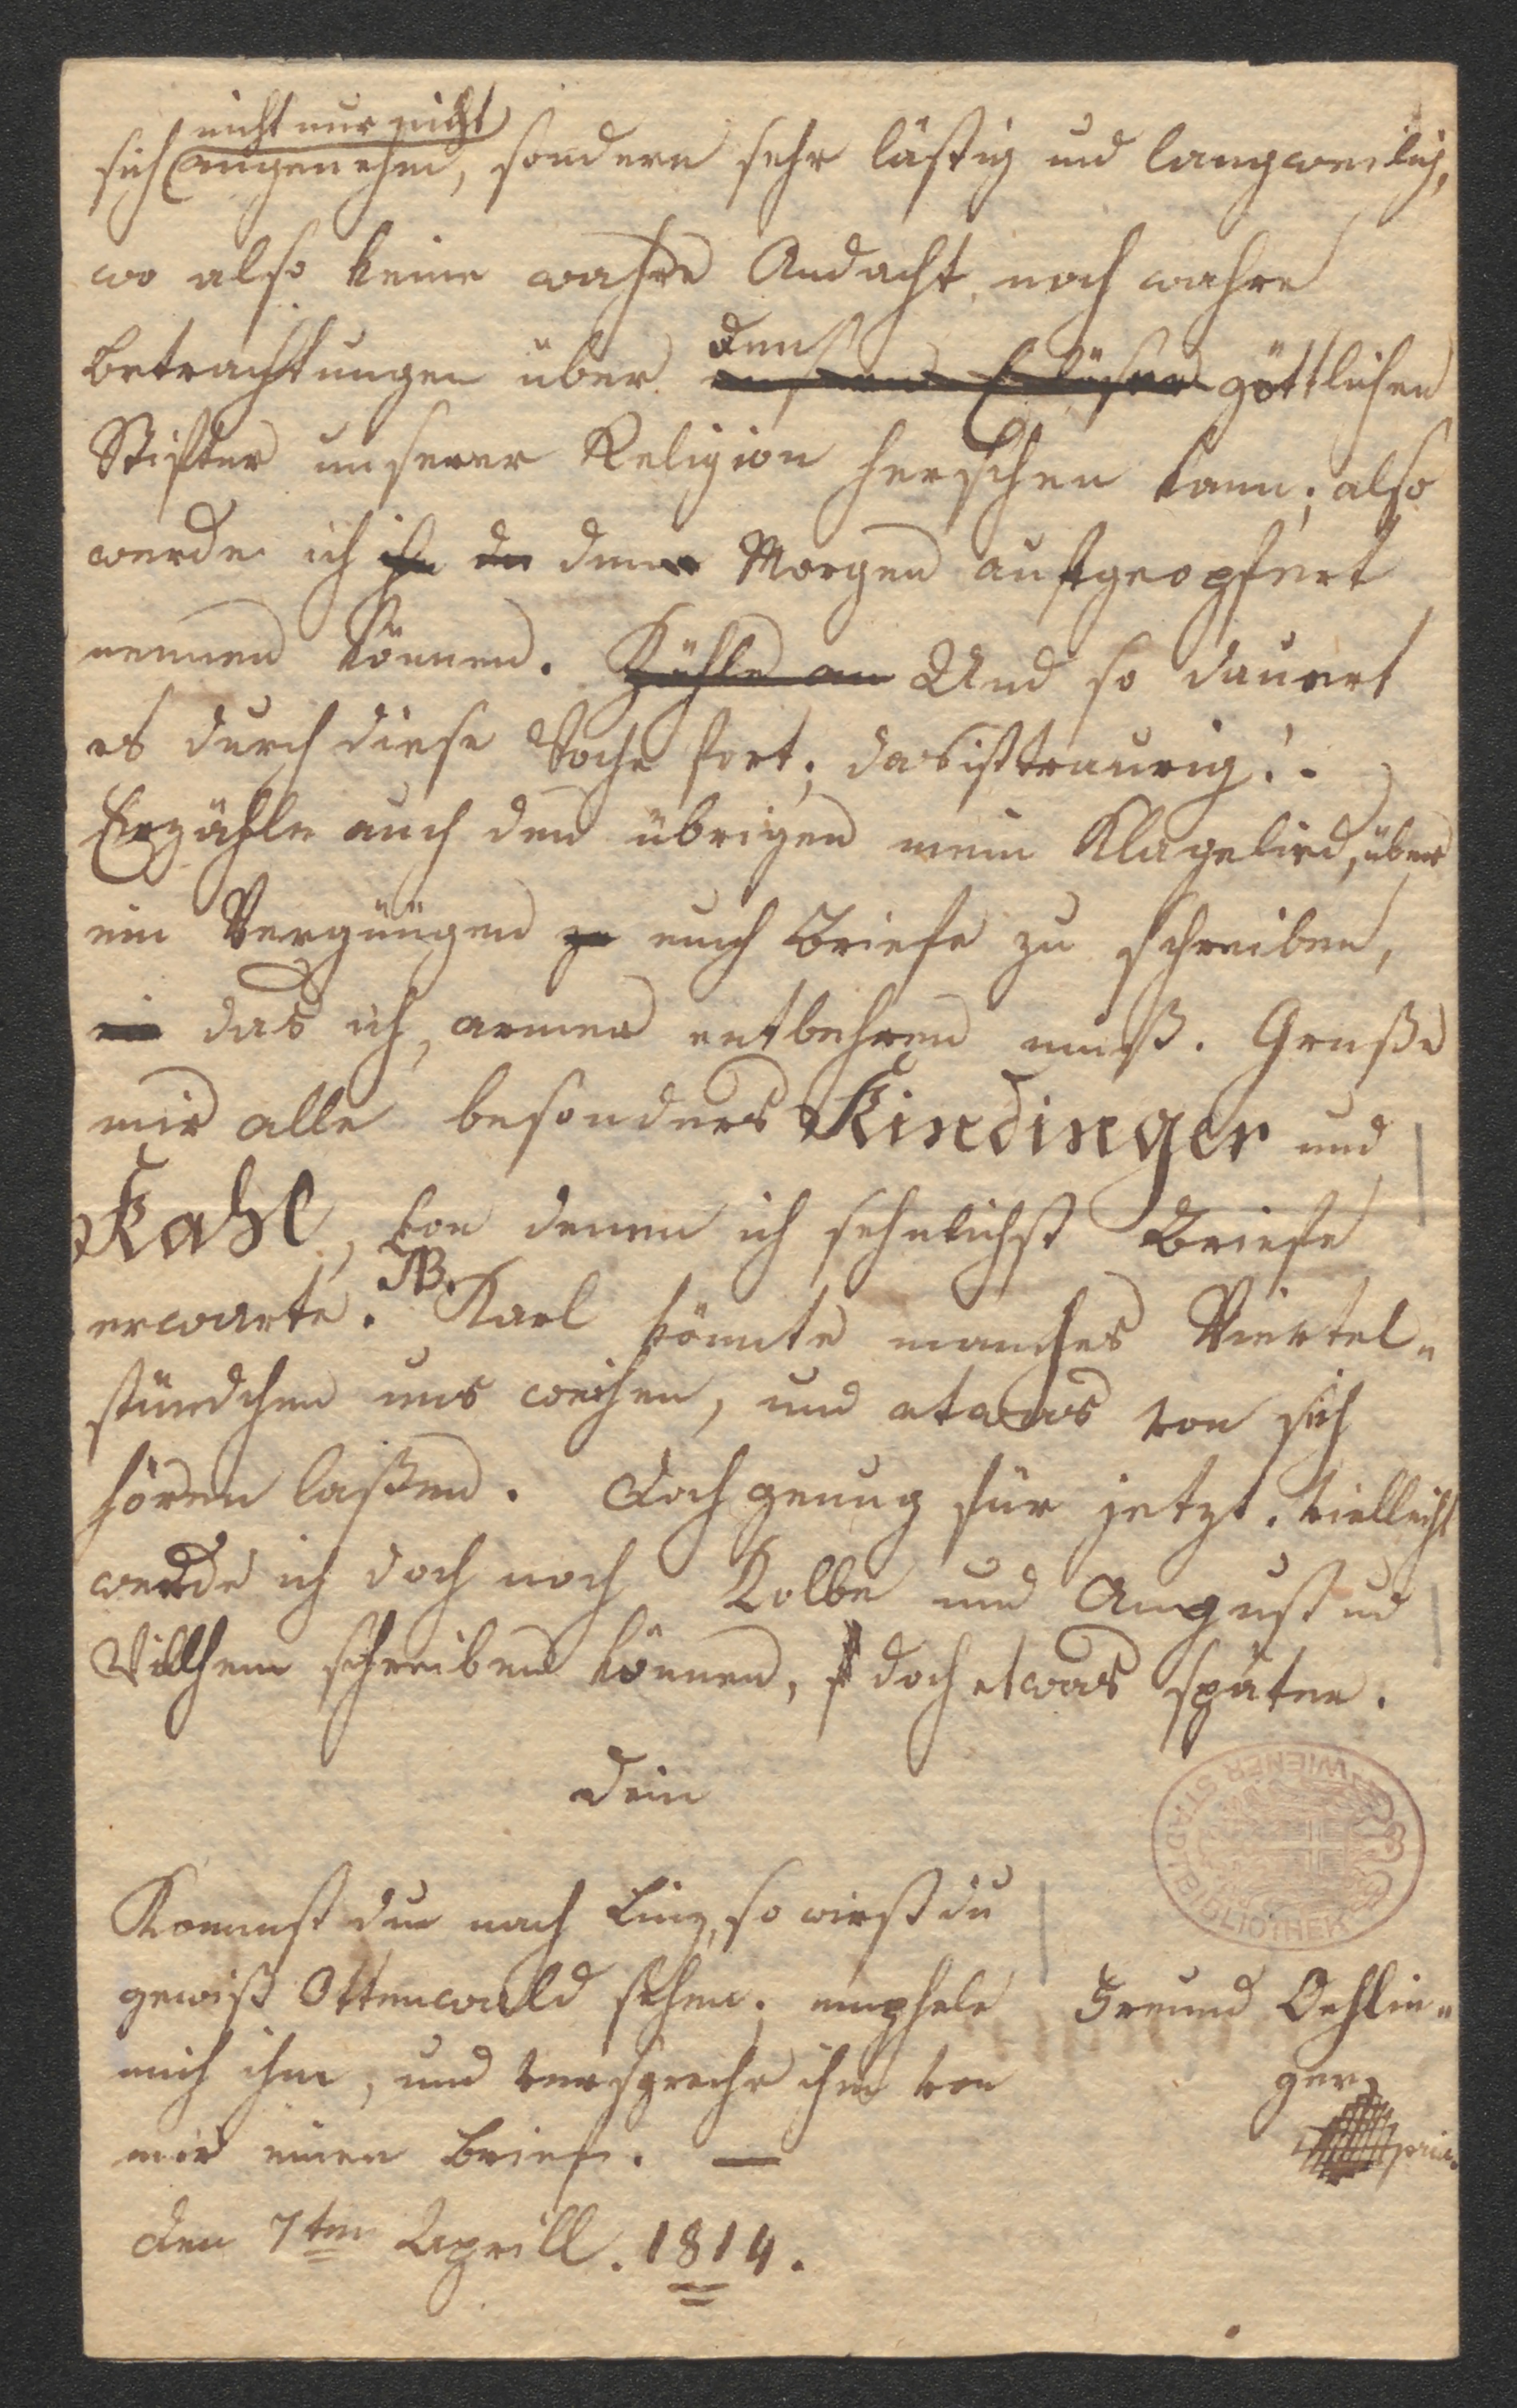 nicht nur nicht
sich angenehm, sondern sehr lästig und langweilig,
wo also keine wahre Andacht, noch wahre
den
Betrachtungen über unsern Erlöser göttlichen
Stifter unserer Religion herschen kann; also
werde ich ihn den Morgen aufgeopfert
nennen können. Zähle an Und so dauert
es durch diese Woche fort; das ist traurig! -
Erzähle auch den übrigen mein Klagelied, über
ein Vergnügen zu euch Briefe zu schreiben,
ein das ich, armer entbehren muß. Gruße
mir alle besonders Kindinger und
Kahl, von denen ich sehnlichst Briefe
erwarte. NB. Karl könnte manches Viertel-
stündchen uns weihen, und etwas von sich
hören laßen. Doch genug für jetzt. Vielleicht
werde ich doch noch Kolbe und August und
Willhem schreiben können, doch etwas später.
Dein
WIENER STADTBIBLIOTHEK
Kommst du nach Linz, so wirst du
gewiß Ottenwald sehen; emphele
mich ihm, und verspreche ihm von
mir einen Brief. —
Freund Oehlin-
ger
den 7ten Aprill. 1814.